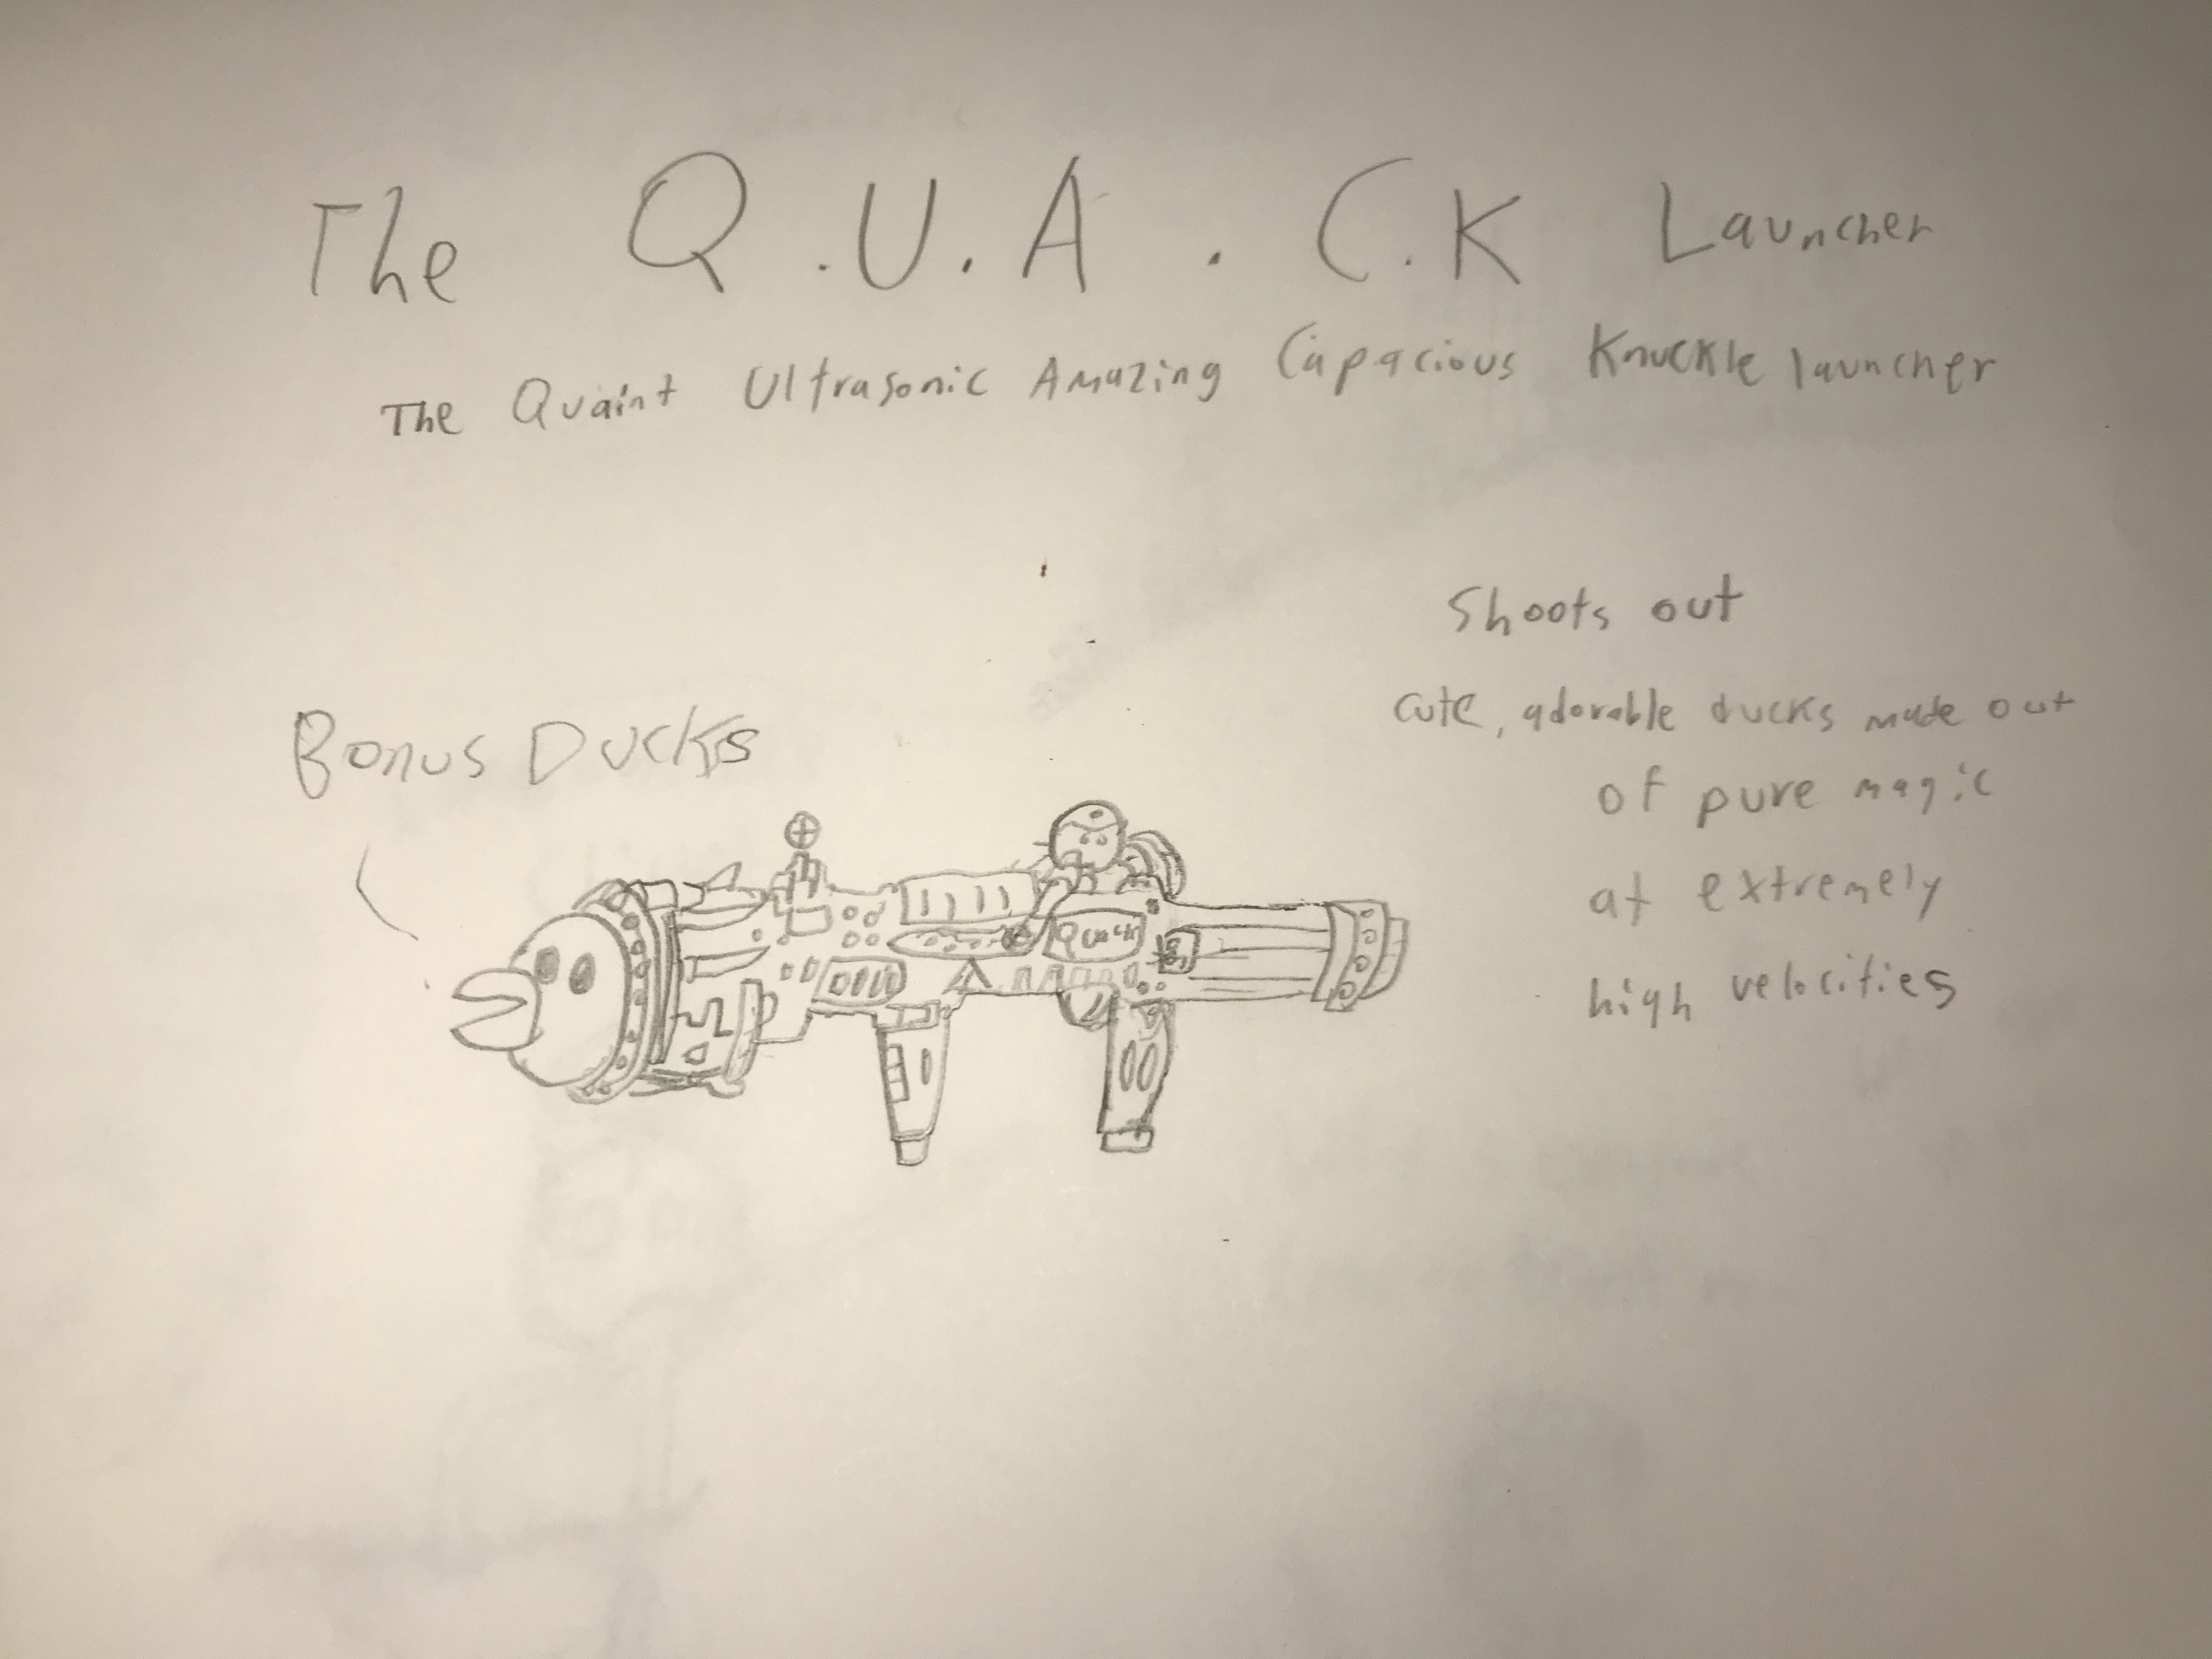 The Q.U.A.C.K Launcher
The Quaint Ultrasonic Amazing Capacious Knuckle launcher
Shoots out
cute, adorable ducks made out
of pure magic
at extremely
high velocities
Bonus Ducks
Quack